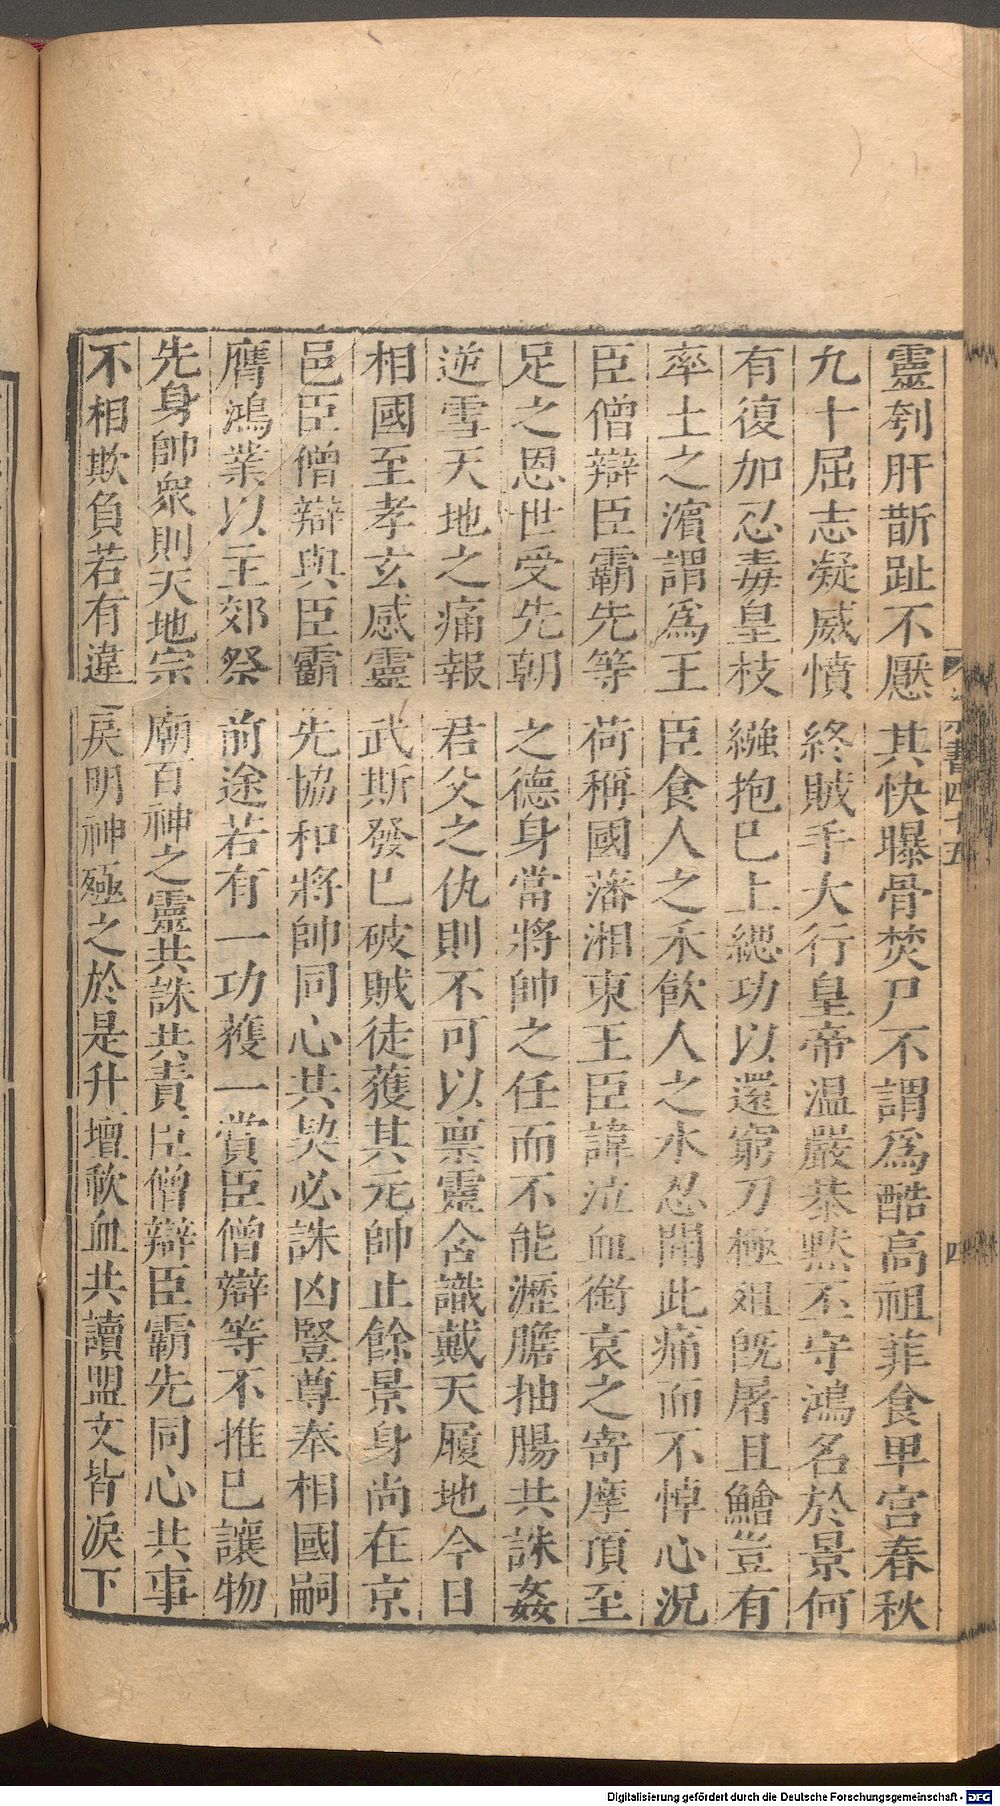 靈刳肝斮趾不厭其快曝骨焚尸不謂為酷高祖菲食卑宮春秋
九十屈志凝威憤終賊手大行皇帝溫嚴恭默丕守鴻名於景何
有復加忍毒皇枝繈抱已上緦功以還窮刀極俎既屠且鱠豈有
率土之濱謂為王臣食人之禾飲人之水忍聞此痛而不悼心況
臣僧辯臣霸先等荷稱國藩湘東王臣諱泣血銜哀之寄摩頂至
足之恩世受先朝之德身當將帥之任而不能瀝膽抽腸共誅姦
逆雪天地之痛報君父之仇則不可以稟靈含識戴天履地今日
相國至孝玄感靈武斯發已破賊徒獲其元帥止餘景身尚在京
邑臣僧辯與臣霸先協和將帥同心共契必誅凶豎尊奉相國嗣
膺鴻業以主郊祭前途若有一功獲一賞臣僧辯等不推已讓物
先身帥眾則天地宗廟百神之靈共誅共責臣僧辯臣霸先同心共事
不相欺負若有違戾明神殛之於是升壇歃血共讀盟文皆淚下
四十五
四
Digitalisierung gefördert durch die Deutsche Forschungsgemeinschaft - DFG